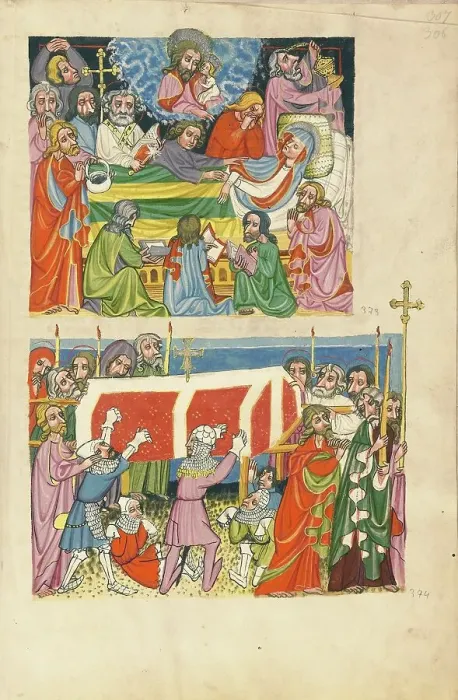 307
306
373
374